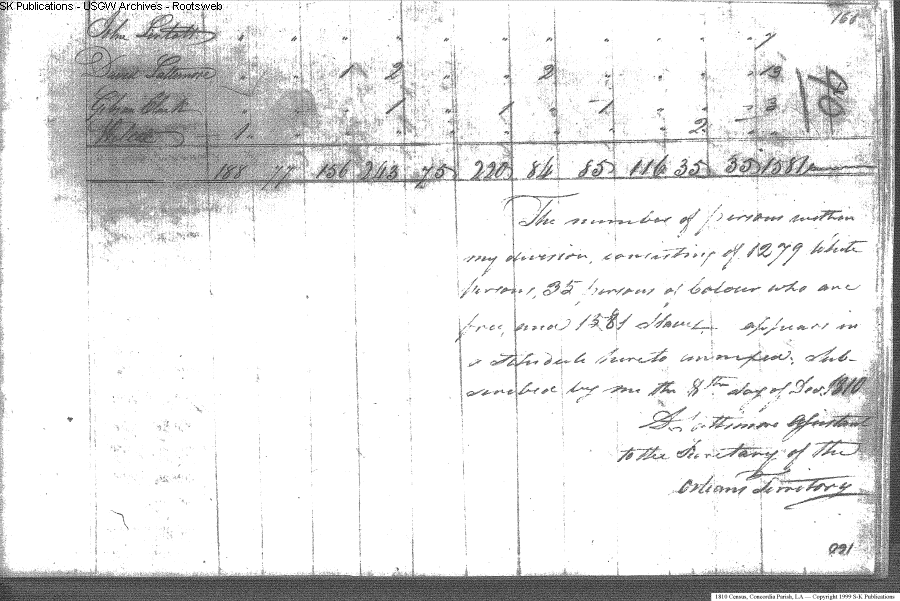 SK Publications - USGW Archives - Rootsweb
168
John
" " " " " " " " " " 7
David Lattimore " " 1 2 " " 2 " " " " 13
" " " 1 " 1 " 1 " " 3
1 " " " " " " " " 2 " "
90
188 77 156 243 75 220 84 85 116 35 35 1581
The number of persons within
my division, consisting of 1279 White
persons, 35 persons of Colour who are
free, and 1581 Slaves appears in
a schedule hereto annexed. Sub-
scribed by me the 8th day of Dec. 1810
D. Lattimore Assistant
to the Secretary of the
Orleans Territory
991
1810 Census, Concordia Parish, LA — Copyright 1999 S-K Publications